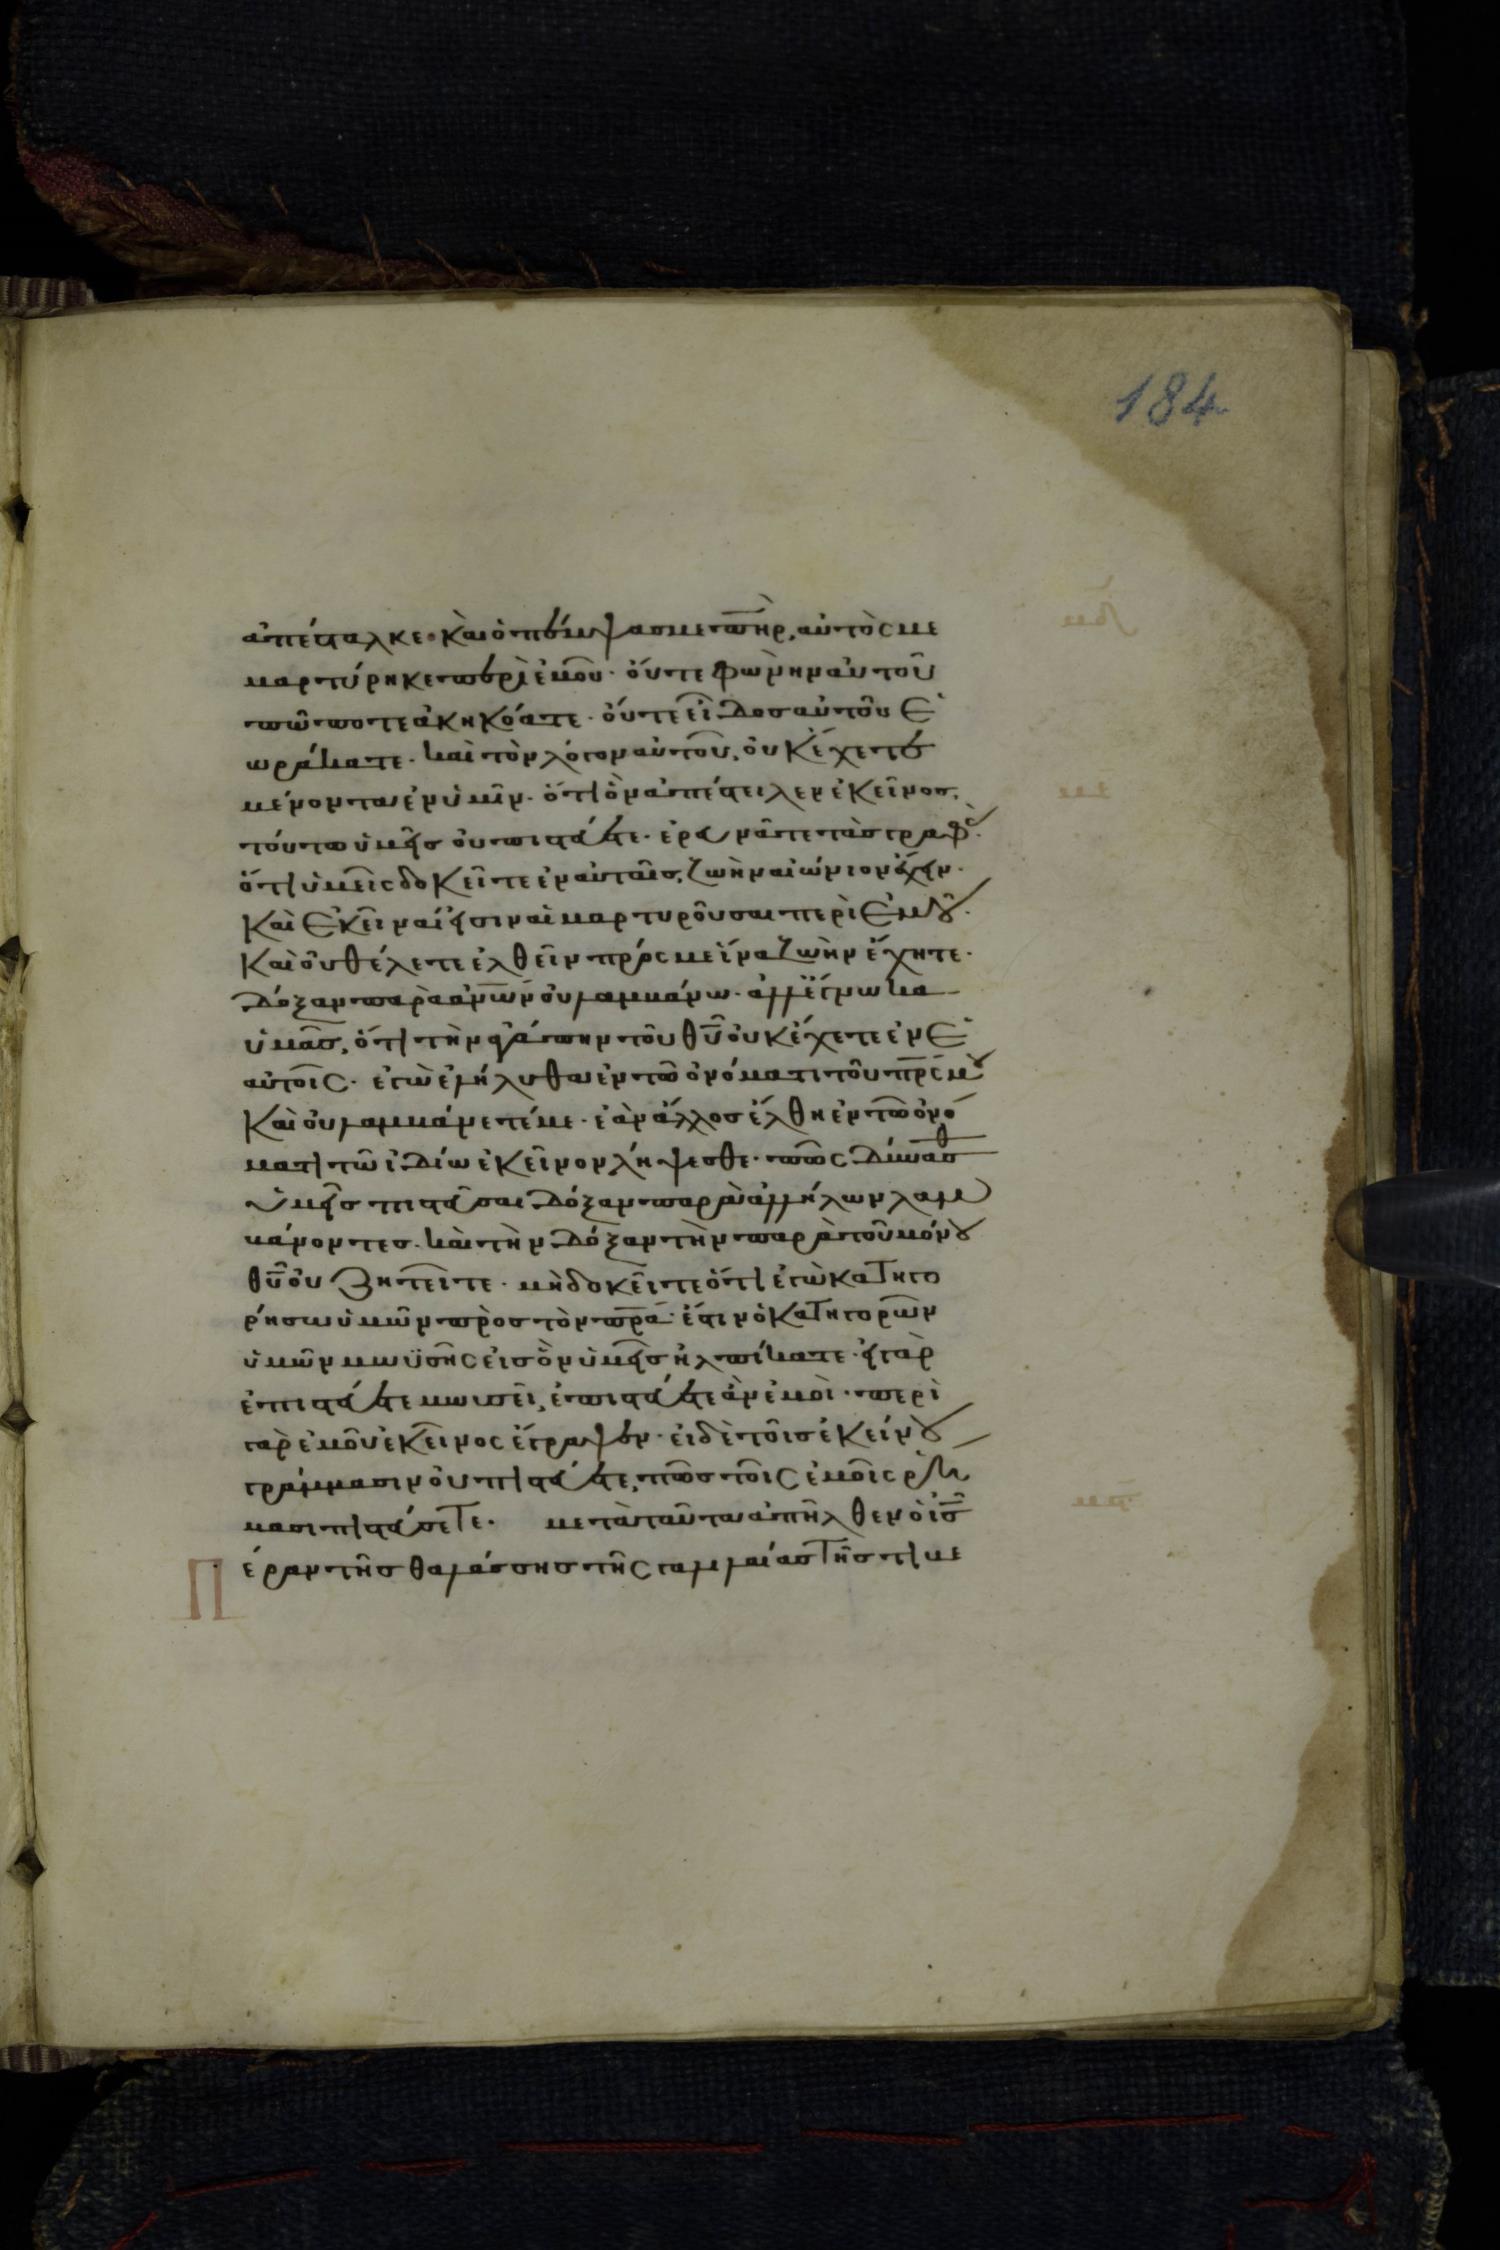 184
ἀπέσταλκε· Καὶ ὁ πέμψας με πηρ, αὐτὸς με
μαρτύρηκε περὶ ἐμοῦ· οὔτε φωνὴν αὐτοῦ
πώποτε ἀκηκόατε· οὔτε εἶδος αὐτοῦ ἑ
ωράκατε· καὶ τὸν λόγον αὐτοῦ, οὐκ ἔχετε
μένοντα ἐν ὑμῖν· ὅτι ὃν ἀπέστειλεν ἐκεῖνος,
τούτω ὑμεῖς οὐ πιστεύετε· ἐρευνᾶτε τὰς γραφὰς·
ὅτι ὑμεῖς δοκεῖτε ἐν αὐταῖς, ζωὴν αἰώνιον ἔχειν·
Καὶ ἐκεῖναί εἰσιν αἱ μαρτυροῦσαι περὶ ἐμοῦ·
Καὶ οὐ θέλετε ἐλθεῖν πρός με ἵνα ζωὴν ἔχητε·
Δόξαν παρὰ ἀνων οὐ λαμβάνω· ἀλλ' ἔγνωκα
ὑμᾶς, ὅτι τὴν ἀγάπην τοῦ θυ οὐκ ἔχετε ἐν ἑ
αυτοῖς· ἐγὼ ἐλήλυθα ἐν τῶ ὀνόματι τοῦ πρς μου
Καὶ οὐ λαμβάνετέ με· ἐὰν ἄλλος ἔλθη ἐν τῶ ὀνό
ματι τῶ ἰδίω ἐκεῖνον λήψεσθε· πῶς δύνασθε
ὑμεῖς πιστεῦσαι δόξαν παρὰ ἀλλήλων λαμ
βάνοντες· καὶ τὴν δόξαν τὴν παρὰ τοῦ μόνου
θυ οὐ ζητεῖτε· μὴ δοκεῖτε ὅτι ἐγὼ κατηγο
ρήσω ὑμῶν πρὸς τὸν πρα· ἔστιν ὁ κατηγορῶν
ὑμῶν μωϋσῆς εἰς ὃν ὑμεῖς ἠλπίκατε· εἰ γὰρ
ἐπιστεύετε μωσεῖ, ἐπιστεύετε ἂν ἐμοὶ· περὶ
γὰρ ἐμοῦ ἐκεῖνος ἔγραψεν· εἰ δὲ τοῖς ἐκείνου
γράμμασιν οὐ πιστεύετε, πῶς τοῖς ἐμοῖς ρή
μασι πιστεύσετε· μετὰ ταῦτα ἀπῆλθεν ὁ ις
Πέραν τῆς θαλάσσης τῆς γαλιλαίας τῆς τιβε